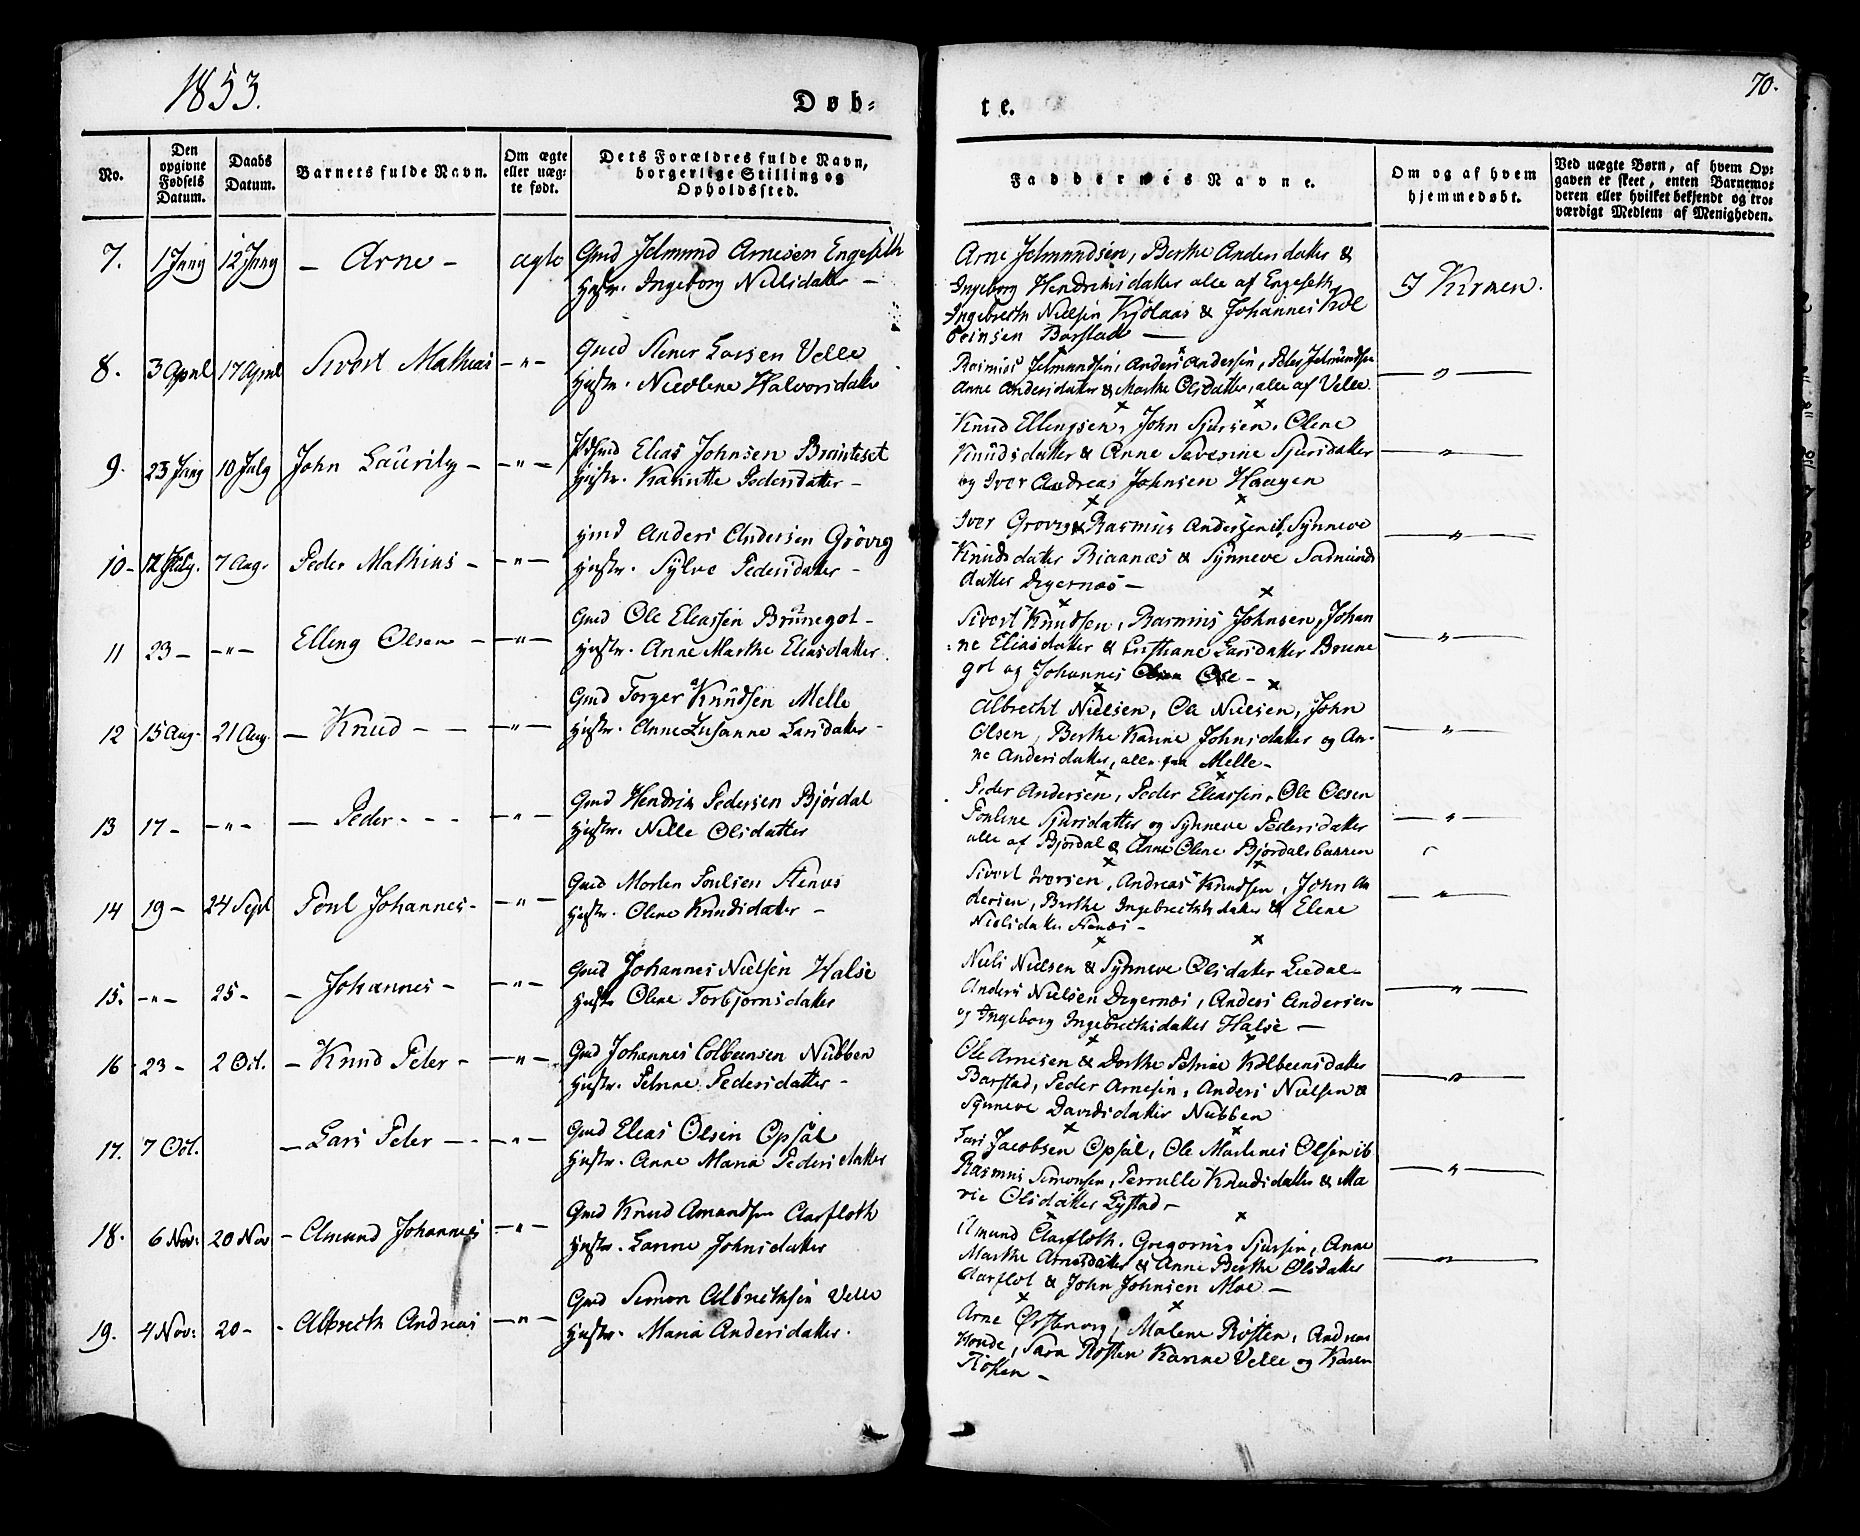 1853.
Døb-
te.
70.
No.
Den
opgivne
Fødsels
Datum.
Daabs
Datum.
Barnets fulde Navn.
Om ægte
eller uæg-
te født.
Dets Forældres fulde Navn,
borgerlige Stilling og
Opholdssted.
Faddernes Navne.
Om og af hvem
hjemmedøbt.
Ved uægte Børn, af hvem Op-
gaven er skeet, enten Barnemo-
deren eller hvilket bekjendt og tro-
værdigt Medlem af Menigheden.
7. 1 Juny 12 Juny – Arne – ægte
Gmd Jelmund Arnesen Engeseth
Hustr. Ingeborg Nilsdatter –
Arne Jelmundsen, Berthe Andersdatter &
Ingeborg Hendriksdatter alle af Engeseth,
Ingebreth Nielsen Kjølaas & Johannes Kol
beinsen Barstad –
I Kirken.
8. 3 April 17 April Sivert Mathias – " –
Gmd Stener Larsen Velle
Hustr. Nicoline Halvorsdatter
Rasmus Jelmundsen, Anders Andersen, Peder Jelmundsen
Anne Andersdatter & Marthe Olsdatter, alle af Velle.
– " –
9. 23 Juny 10 July John Lauritz – – " –
Elias Johnsen Brauteset
Hustr. Karinne Pedersdatter –
Knud Ellingsen, John Sjursen, Oline
Knudsdatter & Anne Severine Sjursdatter
og Iver Andreas Johnsen Haagen
– " –
10 – 12 July. 7 Aug. Peder Mathias – – " –
Gmd Anders Andersen Grøvig
Hustr. Sylve Pedersdatter –
Iver Grøvig & Rasmus Andersen ib, Synneve
Knudsdatter Riaanæs & Synneve Salmunds
datter Digernæs –
– " –
11 23 – – " – Elling Olsen – – " –
Gmd Ole Eliassen Brunegot –
Hustr. Anne Marthe Eliasdatter.
Sivert Knudsen, Rasmus Johnsen, Johan
ne Eliasdatter & Larsdatter Brune
got og Johannes Ose –
– " –
12 15 Aug. 21 Aug. – Knud – – – " –
Gmd Torger Knudsen Melle
Hustr. Anne Susanne Larsdatter –
Albrecht Nielsen, Ole Nielsen, John
Olsen, Berthe Karine Johnsdatter og An-
ne Andersdatter, alle fra Melle –
– " –
13 17 – – " – – Peder – – – – " –
Gmd Hendrik Pedersen Bjørdal
Hustr. Nille Olsdatter
Peder Andersen, Peder Eliassen, Ole Olsen
Pouline Sjursdatter og Synneve Pedersdatter
alle af Bjørdal & Anne Oline Bjørdalsbakken
– " –
14 19 – 24 Sept Poul Johannes – – " –
Gmd Morten Poulsen Stenæs
Hustr. Oline Knudsdatter –
Sivert Iversen, Andreas Knudsen, John An
dersen, Berthe Ingebrethsdatter & Elene
Nielsdatter Stenæs –
– " –
15. – " – 25 – – Johannes – – " –
Gmd Johannes Nielsen Halse
Hustr Oline Torbjørnsdatter
Niels Nielsen & Synneve Olsdatter Liedal –
Anders Nielsen Digernæs, Anders Andersen
og Ingeborg Ingebrethsdatter Halse –
– " –
16 23 – 2 Oct. – Knud Peter – – " –
Gmd Johannes Colbeensen Nubben
Hustr. Petrine Pedersdatter –
Ole Arnesen & Dorthe Petrine Kolbeensdatter
Barstad, Peder Arnesen, Anders Nielsen &
Synneve Davidsdatter Nubben
– " –
17. 7 Oct. – Lars Peter – – – " –
Gmd Elias Olsen Opsal
Hustr. Anne Maria Pedersdatter
Lars Jacobsen Opsal, Ole Martines Olsen ib
Rasmus Simonsen, Pernille Knudsdatter & Ma
rie Olsdatter Lystad –
– " –
18. 6 Nov: 20 Nov – Amund Johannes – " –
Gmd Knud Amundsen Aarfloth
Hustr. Lanne Johnsdatter
Amund Aarfloth, Gregorius Sjursen, Anne
Marthe Arnesdatter & Anne Berthe Olsdatter
Aarflot & John Johnsen Moe –
– " –
19. 4 Nov: 20 – – Albreth Andreas – " –
Gmd Simon Albrethsen Velle
Hustr. Maria Andersdatter.
Arne Ørstenvig, Malene Røsten, Andreas
Hovde, Sara Røsten Karine Velle og Karen
Røsten –